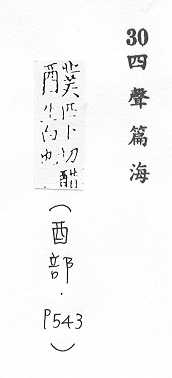 30四聲篇海
醭匹卜切醋
生白
（酉部．P543）